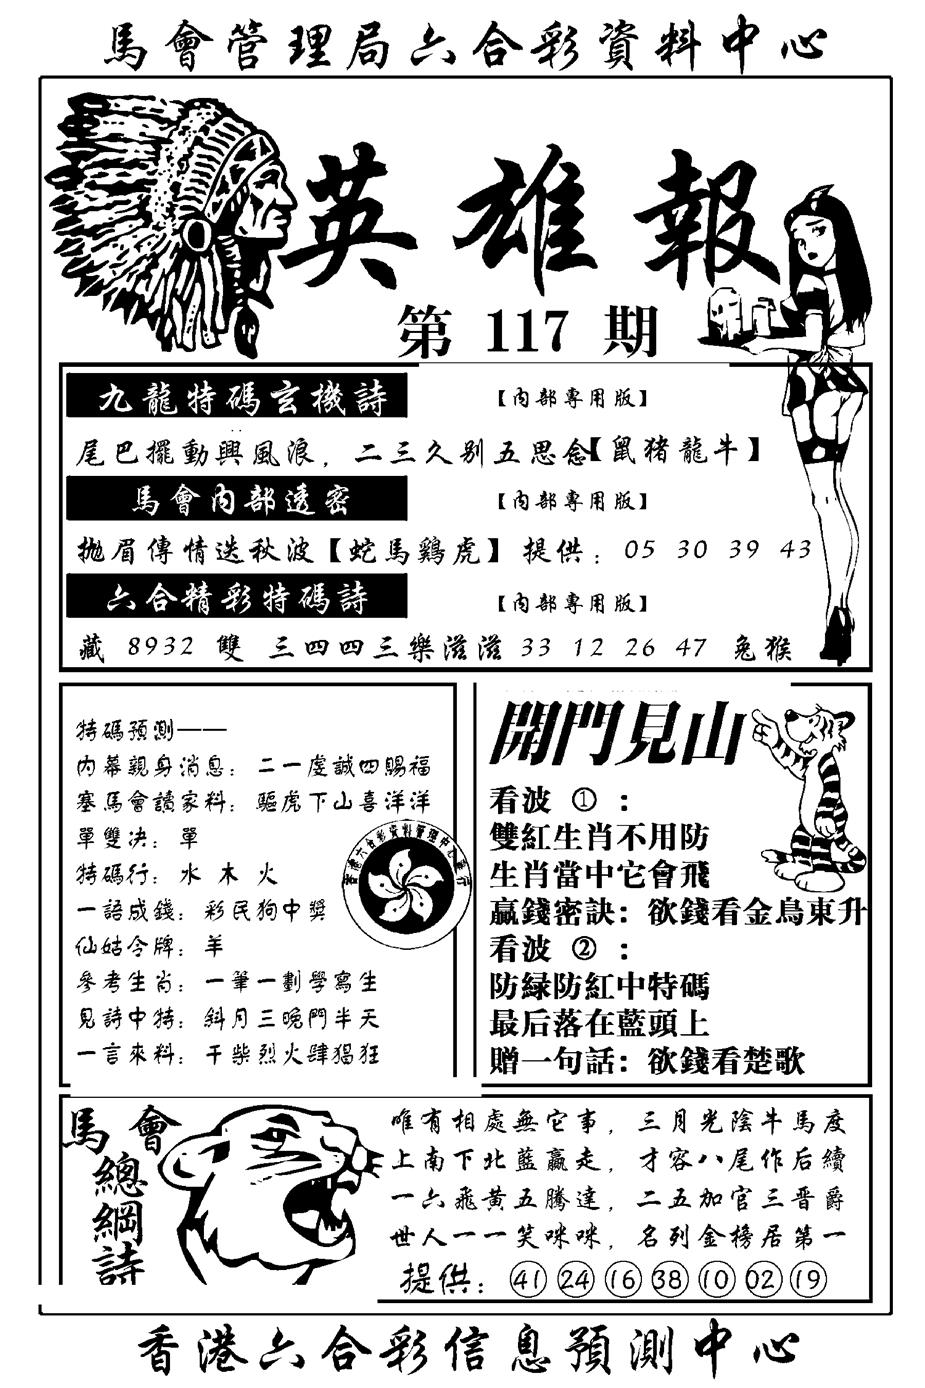 馬會管理局六合彩資料中心
英雄報
第 117 期
九龍特碼玄機詩 【内部專用版】
尾巴擺動興風浪，二三久别五思念【鼠猪龍牛】
馬會内部透密 【内部專用版】
抛眉傳情送秋波【蛇馬鷄虎】 提供：05 30 39 43
六合精彩特碼詩 【内部專用版】
藏 8932 雙 三四四三樂滋滋 33 12 26 47 兔猴
特碼預測——
内幕親身消息：二一虔誠四賜福
塞馬會讀家料：驅虎下山喜洋洋
單雙决：單
特碼行：水 木 火
一語成錢：彩民狗中獎
仙姑令牌：羊
參考生肖：一筆一劃學寫生
見詩中特：斜月三晚門半天
一言來料：干柴烈火肆猖狂
開門見山
看波 ①：
雙紅生肖不用防
生肖當中它會飛
贏錢密訣：欲錢看金鳥東升
看波 ②：
防緑防紅中特碼
最后落在藍頭上
贈一句話：欲錢看楚歌
馬會
總綱詩
唯有相處無它事，三月光陰牛馬度
上南下北藍贏走，才容八尾作后續
一六飛黄五騰達，二五加官三晋爵
世人一一笑咪咪，名列金榜居第一
提供：41 24 16 38 10 02 19
香港六合彩信息預測中心